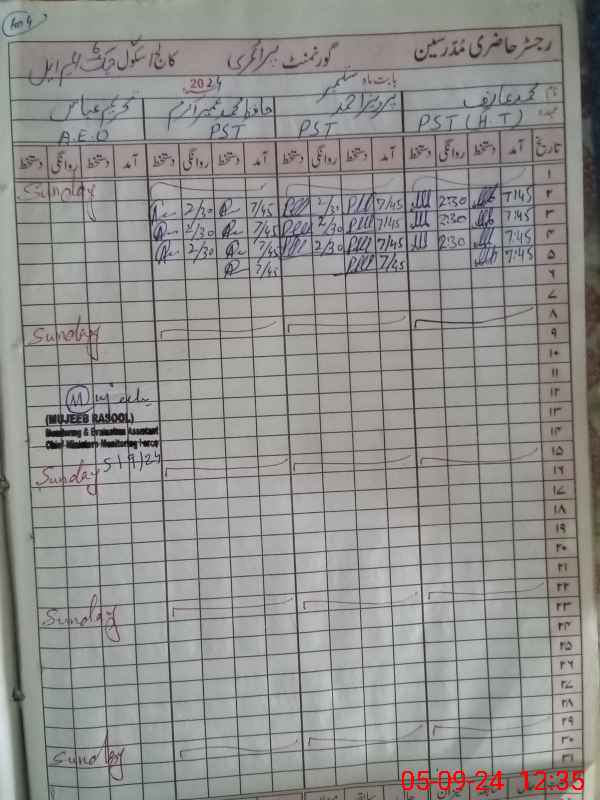 رجسٹر حاضری مدرسین گورنمنٹ پرائمری سکول چک
بابت ماہ ستمبر 2024
نام محمد عارف پرویز احمد حافظ محمد عمیر اکرم تحریم عباس
عہدہ PST (H.T) PST PST A.E.O
تاریخ آمد دستخط روانگی دستخط آمد دستخط روانگی دستخط آمد دستخط روانگی دستخط آمد دستخط روانگی دستخط
۱ Sunday
۲ 7:45 2:30 7/45 2/30 7/45 2/30
۳ 7:45 2:30 7/45 2/30 7/45 2/30
۴ 7:45 2:30 7/45 2/30 7/45 2/30
۵ 7:45 7/45 7/45
۶
۷
۸ Sunday
۹
۱۰
۱۱
۱۲ Mujeeb
۱۳ (MUJEEB RASOOL)
Monitoring & Evaluation Assistant
۱۴ Chief Minister's Monitoring Force
۱۵ Sunday 5/9/24
۱۶
۱۷
۱۸
۱۹
۲۰
۲۱
۲۲ Sunday
۲۳
۲۴
۲۵
۲۶
۲۷
۲۸
۲۹ Sunday
۳۰
۳۱
05-09-24 12:35